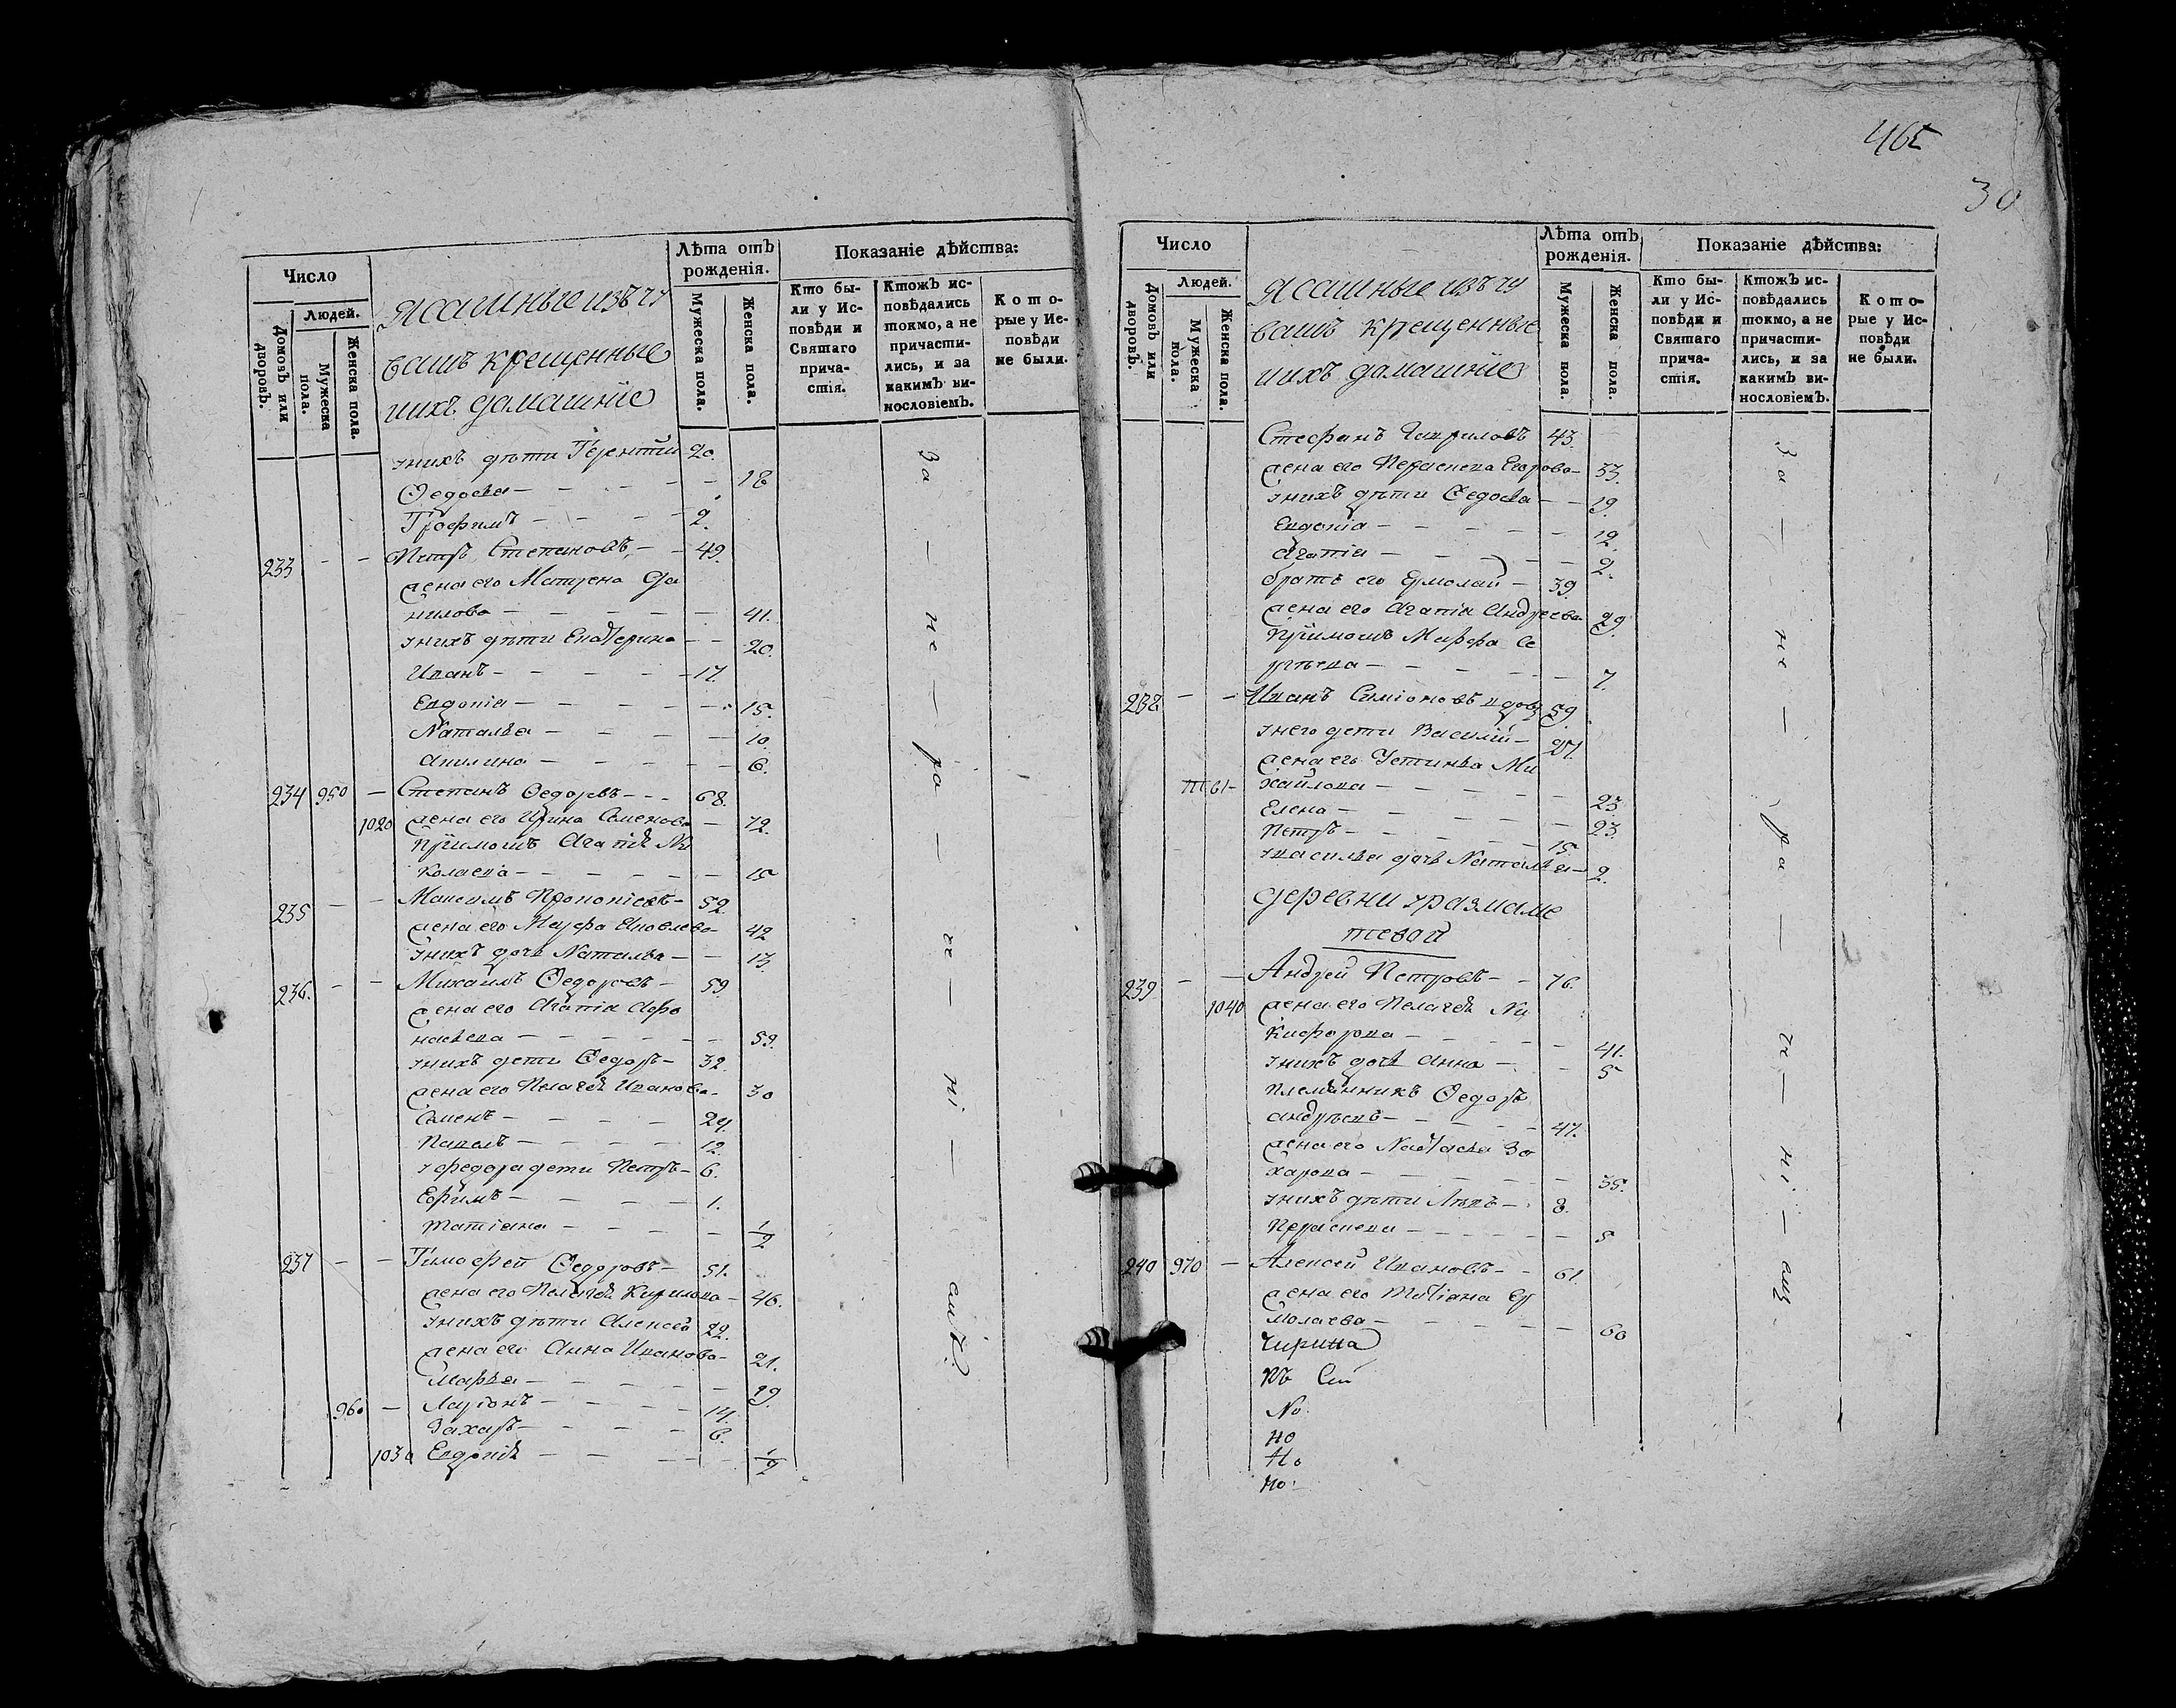 465
30
Число
Людей.
Домовъ или дворовъ.
Мужеска пола.
Женска пола.
Ясашные изъ чу
вашъ крещенные
иихъ домашнїе
Лѣта отъ рождения.
Мужеска пола.
Женска пола.
Показаніе дѣйства:
Кто бы-
ли у Ис-
повѣди и
Святаго
прича-
стія.
Ктожъ ис-
повѣдались
токмо, а не
причасти-
лись, и за
какимъ ви-
нословіемъ.
Кото-
рые у Ис-
повѣди
не были.
унихъ дѣти Терентїй 20.
Ѳедосья - 18
Трофимъ - 2.
233 - - Петръ Степановъ - 49.
жена его Матрена Да
нилова - 41.
унихъ дѣти Екатерина - 20.
Иванъ - 17.
Евдокіа - 15.
Наталья - 10.
Акилина - 6.
234 950 - Степанъ Ѳедоровъ - 68.
1020 жена его Ирина Семенова - 72.
Прїимошъ Агапїя Ни
колаева - 15
235 - - Максимъ Прокопіевъ - 52.
жена его Марфа Яковлева - 42
унихъ дочь Наталья - 13.
236. - - Михаилъ Ѳедоровъ - 59.
жена его Агапїа Афо
насьева - 59.
унихъ дети Ѳедоръ - 32.
жена его Пелагея Иванова - 30
Семенъ - 24.
Павелъ - 12.
у федора дети Петръ - 6.
Ефимъ - 1.
Татіана - 1/2
237 - - Тимофей Ѳедоровъ - 51.
жена его Пелагея Кирилова - 46.
унихъ дѣти Алексей 22.
жена его Анна Иванова - 21.
Марья - 19.
960 - Ларіонъ - 14.
Захаръ - 6.
1030 Евдокїя - 1/2
За - не - ра - че - ні - емъ.
Число
Людей.
Домовъ или дворовъ.
Мужеска пола.
Женска пола.
Ясашные изъ чу
вашъ крещенные
иихъ домашнїе
Лѣта отъ рождения.
Мужеска пола.
Женска пола.
Показаніе дѣйства:
Кто бы-
ли у Ис-
повѣди и
Святаго
прича-
стія.
Ктожъ ис-
повѣдались
токмо, а не
причасти-
лись, и за
какимъ ви-
нословіемъ.
Кото-
рые у Ис-
повѣди
не были.
Стефанъ Гавриловъ 43.
жена его Параскева Егорова - 33.
унихъ дѣти Ѳедосья - 19.
Евдокіа - 12.
Агапіа - 2.
братъ его Ермолай - 39.
жена его Агапіа Андреева 29.
Прїимошъ Марфа Се
ргѣева - 7.
238 - - Иванъ Симіоновъ вдовъ 59.
унего дети Василїй - 27.
жена его Устинья Ми
хайлова - 23.
Елена - 23.
Петръ - 15
уВасилья дочь Наталья - 2.
деревни
239 - - Андрей Петровъ - 76.
1040 жена его Пелагея Ни
кифорова - 41.
унихъ дочь Анна - 5
племянникъ Ѳедоръ
Андрѣевъ - 47.
жена его Настасья За
харова - 35.
унихъ дѣти Левъ - 8.
Параскева - 5
240 970 - Алексей Ивановъ - 61.
жена его Татіана Ер
молаева - 60
Къ Сей
No.
но
Но
но.
За - не - ра - че - ні - емъ.